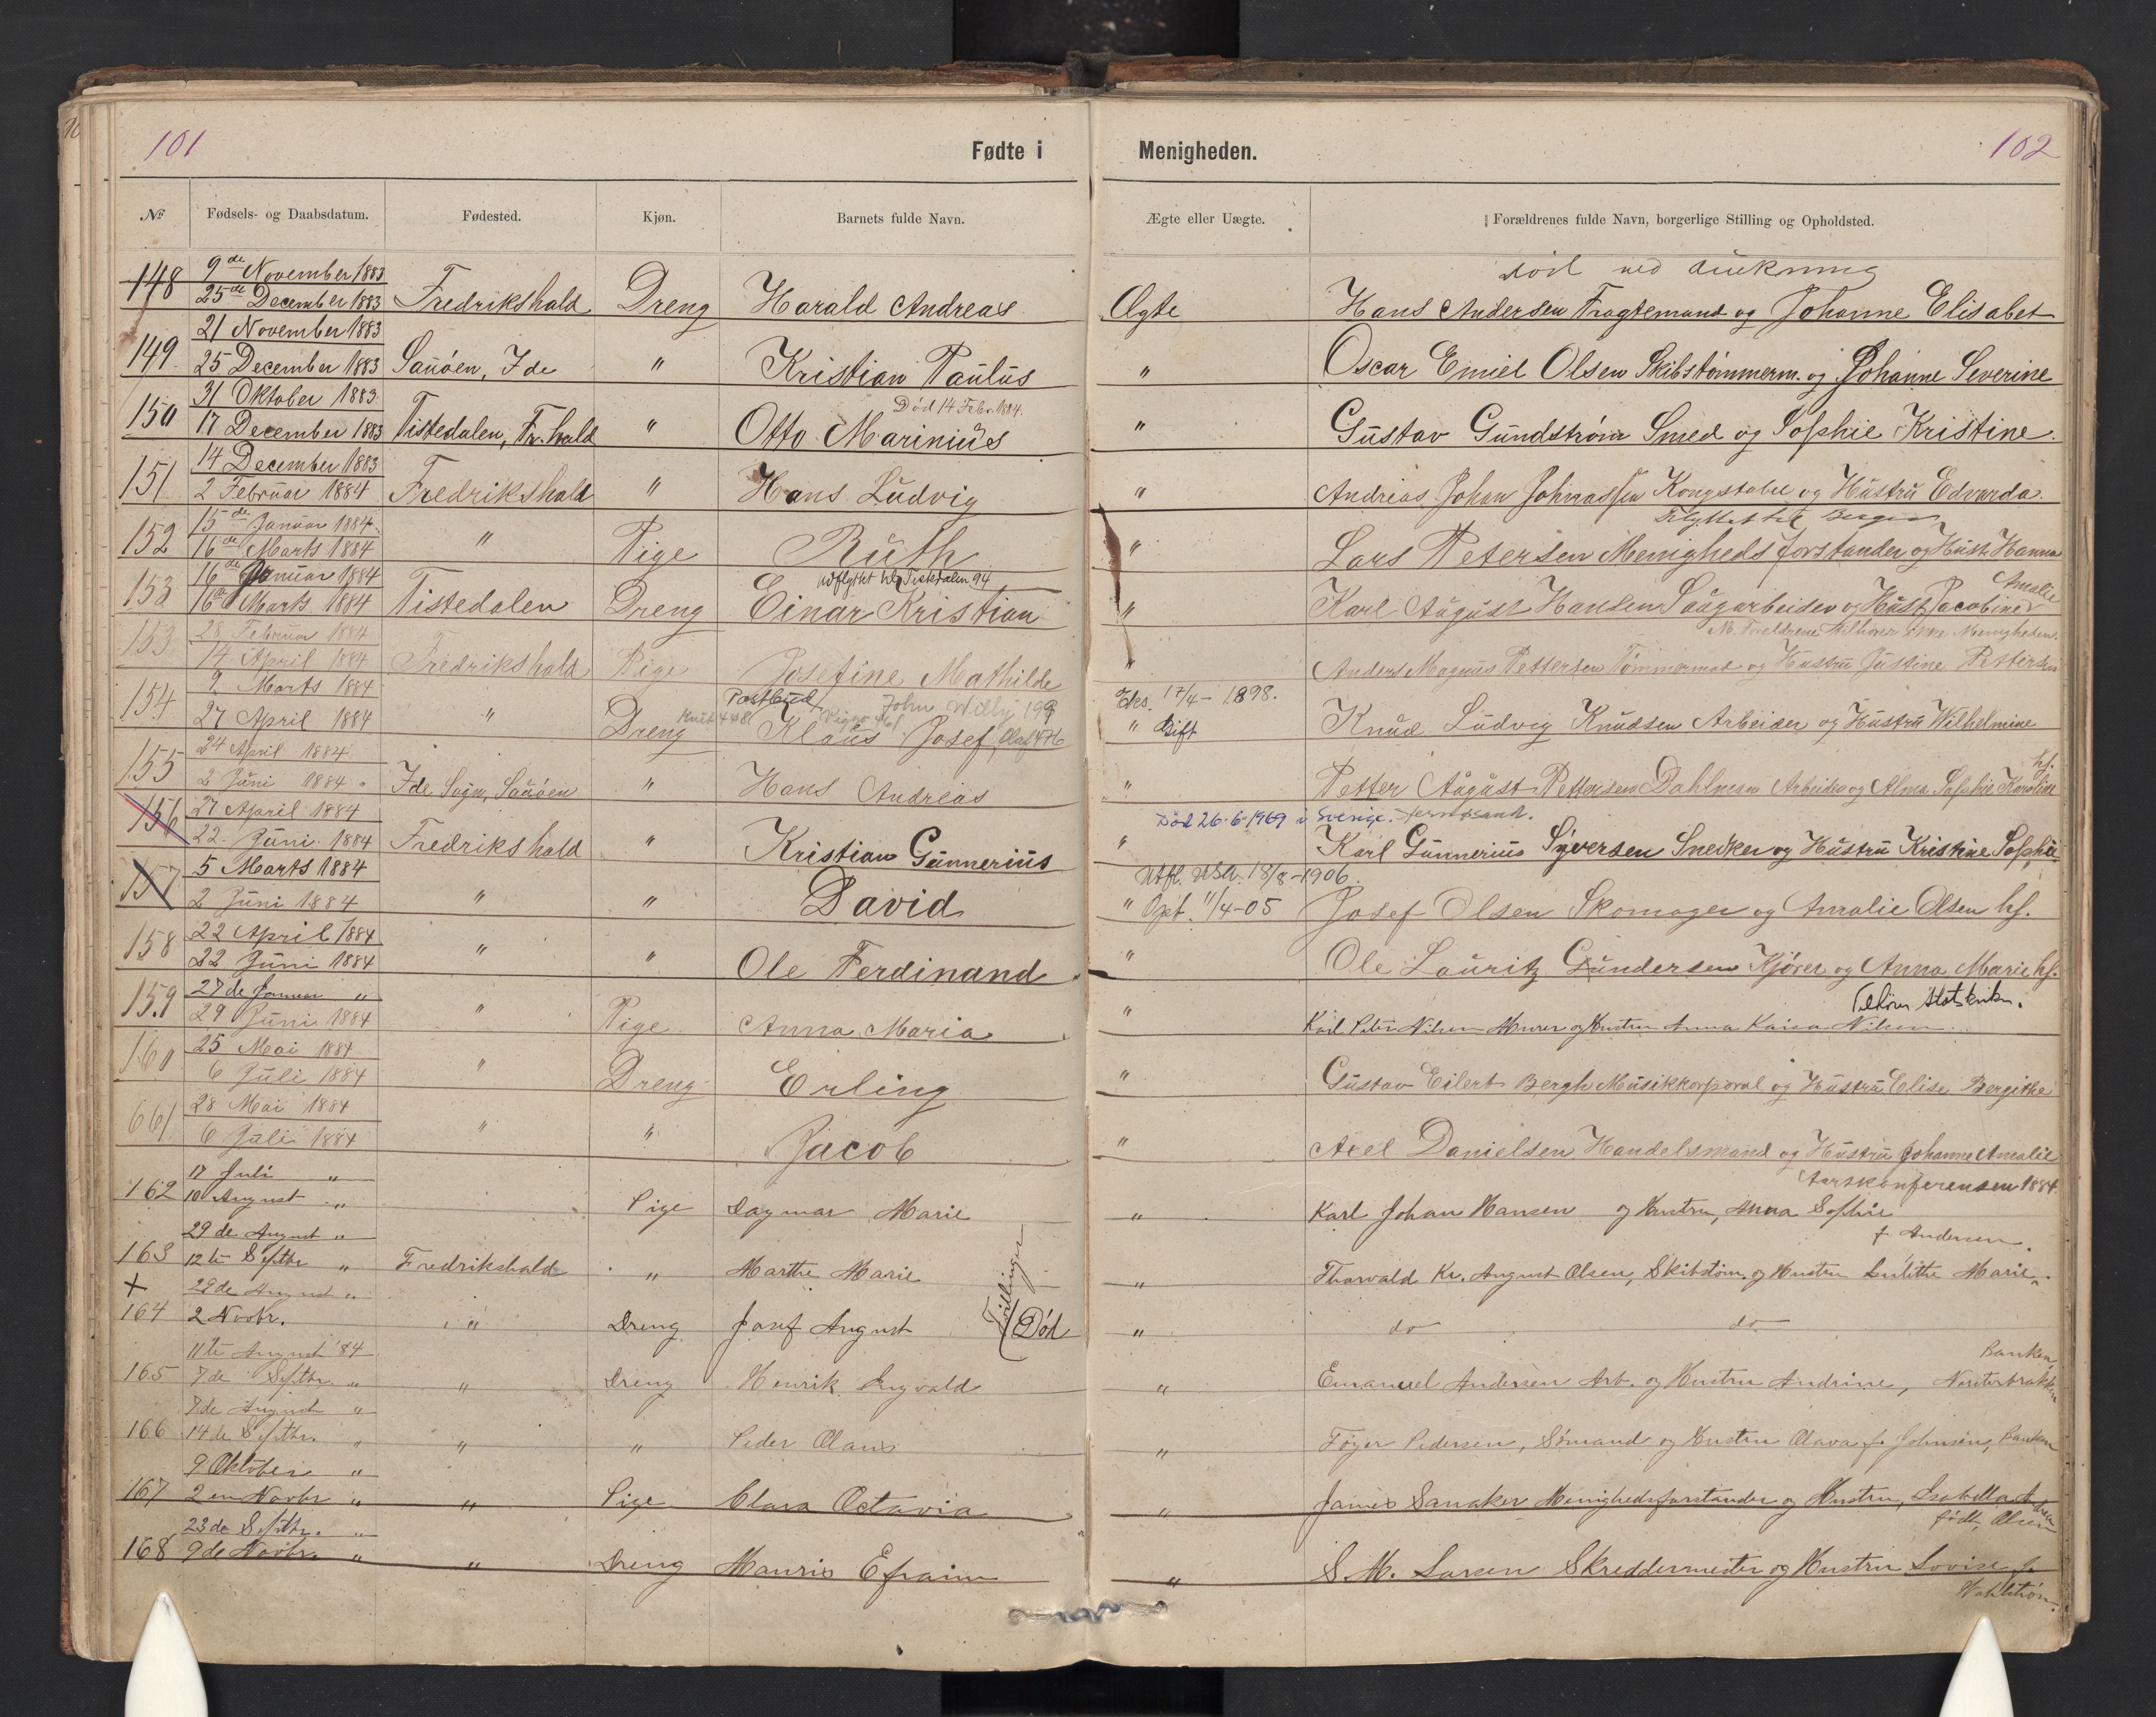 101
Fødte i
Menigheden.
102
№ Fødsels- og Daabsdatum. Fødested. Kjøn. Barnets fulde Navn. Ægte eller Uægte. Forældrenes fulde Navn, borgerlige Stilling og Opholdsted.
9de November 1883 død ved
148 25de December 1883 Fredrikshald Dreng Harald Andreas Ægte Hans Andersen Fragtemand og Johanne Elisabet
21 November 1883
149 25 December 1883 Sauøen, Ide " Kristian Paulus " Oscar Emiel Olsen Skibstømmerm. og Johanne Severine
31 Oktober 1883 Død 14 Febr. 1884.
150 17 December 1883 Tistedalen, Fr.hald " Otto Marinius " Gustav Gundstrøm Smed og Sofhie Kristine.
14 December 1883
151 2 Februar 1884 Fredrikshald " Hans Ludvig " Andreas Johan Johnassen Kongstabel og Hustru Edvarda.
15de Januar 1884 Flyttet til Bergen
152 16de Marts 1884 " Pige Ruth " Lars Petersen Menighedsforstander og Hust. Hanna
Amalie
16de Januar 1884 udflyttet til Tistedalen 94
153 16de Marts 1884 Tistedalen Dreng Einar Kristian " Karl August Hansen Saugarbeider og Hust. Jacobine
28 Februar 1884 Nb. Foreldrene tilhører ikke Menigheden.
153 14 April 1884 Fredrikshald Pige Josefine Mathilde " Anders Magnus Pettersen Tømmermad og Hustru Justine Pettersen
2 Marts 1884 Postbud John Willy 199 Eks. 17/4-1898.
154 27 April 1884 " Dreng Knut 448 Viggo 461 Klaus Josef, Olaf 476 " Gift Knud Ludvig Knudsen Arbeider og Hustru Wilhelmine
24 April 1884 hf.
155 2 Juni 1884 Ide Sogn, Sauøen " Hans Andreas " Petter August Pettersen Dahlman Arbeider og Alma Sofhie Karoline
27 April 1884 Død 26-6-1969 i Sverige.
156 22 Juni 1884 Fredrikshald " Kristian Gunnerius " Karl Gunnerius Syversen Snedker og Hustru Kristine Sofhie
5 Marts 1884 Utfl. USA. 18/8-1906.
157 2 Juni 1884 " " David " Opt. 11/4-05 Josef Olsen Skomager og Amalie Olsen hf.
22 April 1884
158 22 Juni 1884 " " Ole Ferdinand " Ole Lauritz Gundersen Kjører og Anna Marie hf.
27de Januar " Tilhører Statskirken.
159 29 Juni 1884 " Pige Anna Maria " Karl Peter Nilsen Murer og Hustru Anna Kaisa Nilsen
25 Mai 1884
160 6 Juli 1884 " Dreng Erling " Gustav Eilert Bergh Musikkorporal og Hustru Elise Bergithe
28 Mai 1884
661 6 Juli 1884 " " Jacob " Axel Danielsen Handelsmand og Hustru Johanne Amalie
17 Juli " Aarskonferensen 1884.
162 10 August " Pige Dagmar Marie " Karl Johan Hansen og Hustru, Anna Sofhie
f. Andersen.
29de August "
163 12te Septbr " Fredrikshald " Marthe Marie Tvillinger " Thorvald Kr. August Olsen, Skibstøm. og Hustru Marie
+ 29de August "
164 2 Novbr. " Dreng Josef August Død " do do
11te August '84 Banken
165 7de Septbr. " " Dreng Henrik Ingvald " Emanuel Andersen Arb. og Hustru Andrine,
7de August "
166 14de Septbr. " " " Peder Olaus " Pedersen, Sømand og Hustru Olava f. Johnsen, Banken
9 Oktober "
167 2en Novbr " " Pige Clara Octavia " James Sanaker Menighedsforstander og Hustru, Isabella
født, Olsen
23de Septbr. "
168 9de Novbr. " " Dreng Mauris Efraim " S. M. Larsen Skreddermester og Hustru Lovise f.
Wahlstrøm.